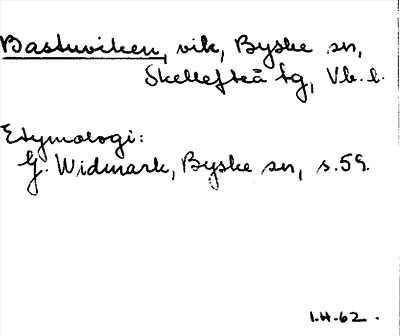 Bastuviken, vik, Byske sn,
Skellefteå tg, Vb. l.
Etymologi:
G. Widmark, Byske sn, s. 59.
I.H-62.